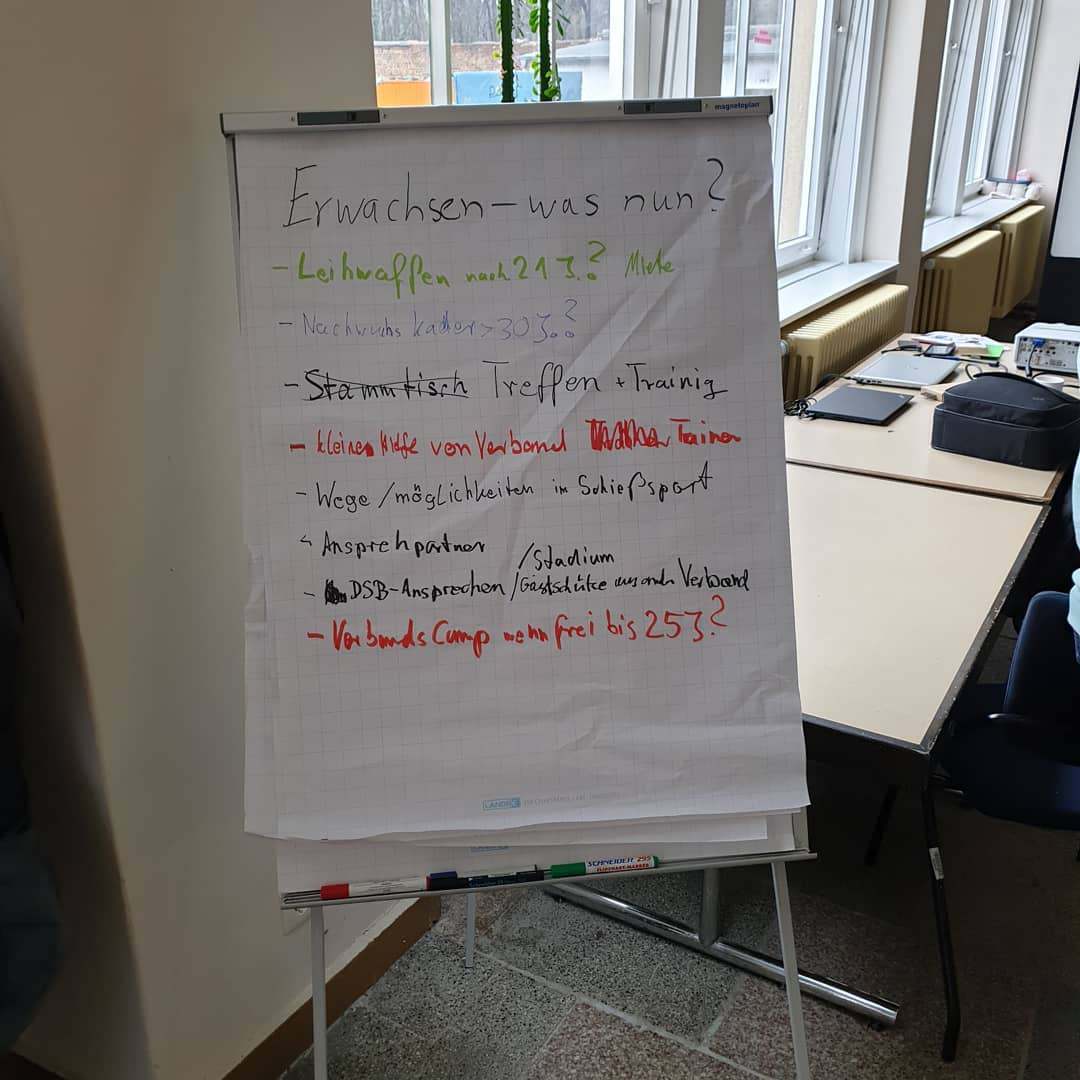 magnetoplan
Erwachsen – was nun?
- Leihwaffen nach 21 J.? Miete
- Nachwuchs kader > 30 J.?
- Stammtisch Treffen + Trainig
- kleinen Hilfe von Verband Trainer
- Wege / möglichkeiten im Schießsport
- Ansprechpartner
/Stadium
- DSB-Ansprechen /Gastschütze aus andn Verband
- Verbands Camp wenn frei bis 25 J?
LANDRÉ
SCHNEIDER 295